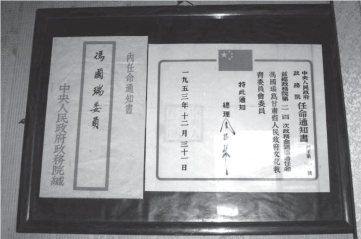 中央人民政府
政務院
任命通知書
茲經政務院第二一 次政務會議通過任命
馮國瑞爲甘肅省人民政府文化教
育委員會委員
特此通知
總理 周恩來
一九五三年十二月三十一日
內任命通知書
馮國瑞委員
中央人民政府政務院緘